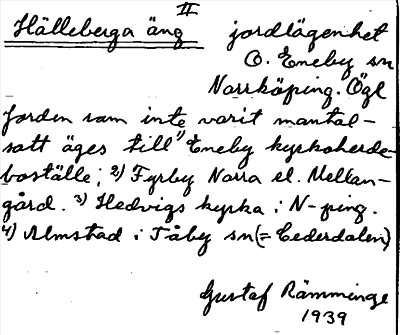 II
Hälleberga äng jordlägenhet
Ö. Eneby sn
Norrköping. Ögl
Jorden som inte varit mantal-
satt äges till 1) Eneby kyrkoherde-
boställe; 2) Fyrby Norra el. Mellan-
gård. 3) Hedvigs kyrka i N-ping.
4) Almstad i Tåby sn (= Cederdalen)
Gustaf Rämminge
1939